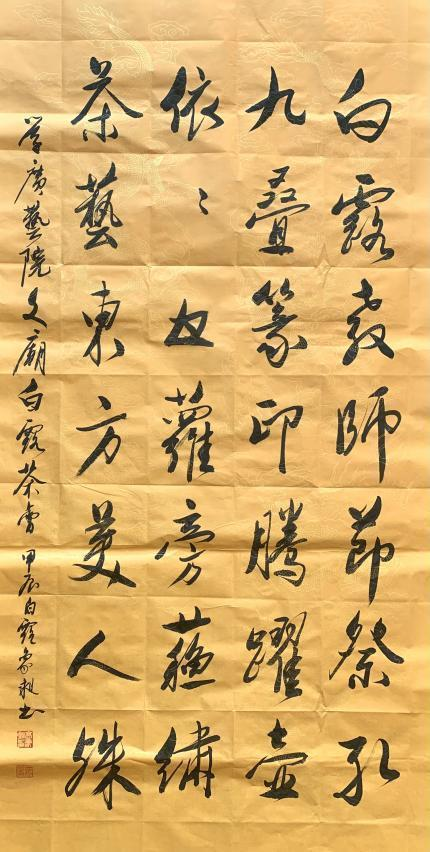 白露教師節祭孔
九疊篆印騰躍壺
依〻女蘿旁蘓繡
茶藝東方美人殊
廣藝院文廟白露茶會 甲辰白露 书